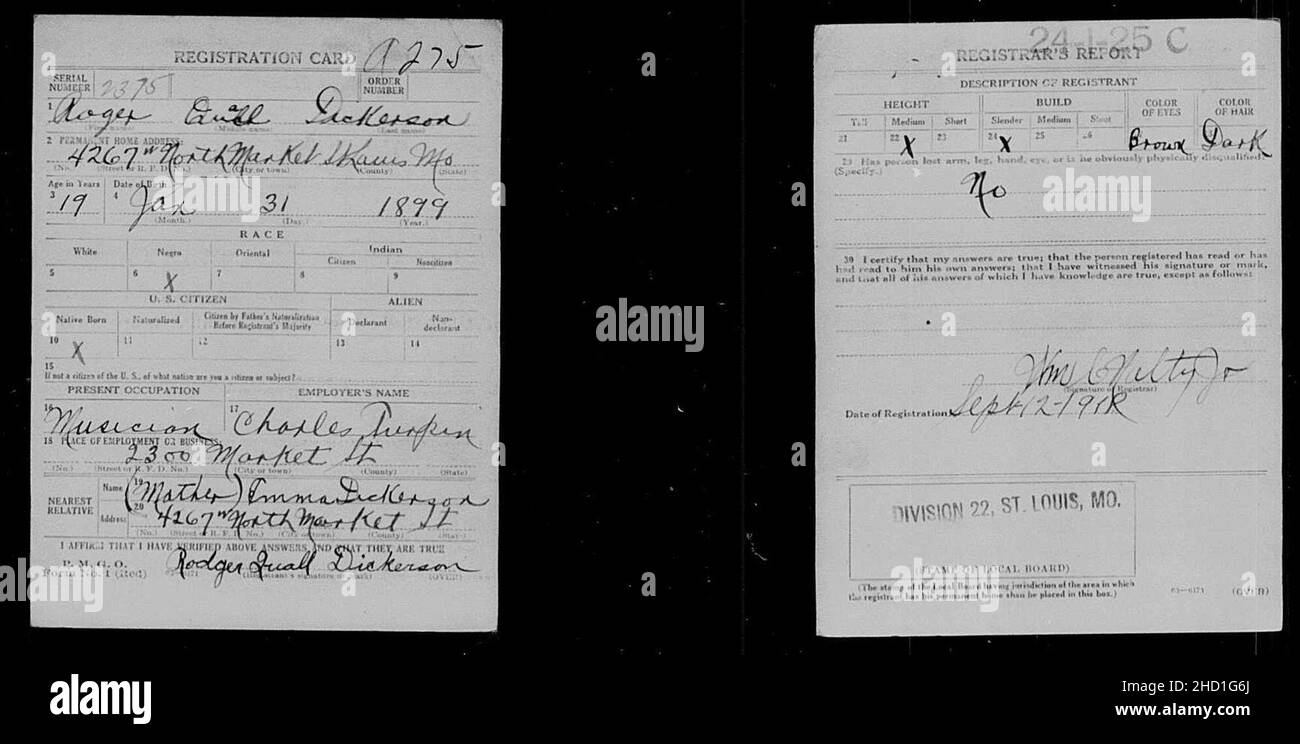 REGISTRATION CARD A 275
SERIAL NUMBER 2375 ORDER NUMBER
1 Roger Quall Dickerson
(First name) (Middle name) (Last name)
2 PERMANENT HOME ADDRESS:
4267 w North Market St Louis Mo
(No.) (Street or R. F. D. No.) (City or town) (County) (State)
Age in Years Date of Birth
3 19 4 Jan 31 1899
(Month.) (Day.) (Year.)
RACE
White Negro Oriental Indian
Citizen Noncitizen
5 6 X 7 8 9
U. S. CITIZEN ALIEN
Native Born Naturalized Citizen by Father's Naturalization Before Registrant's Majority Declarant Non-declarant
10 X 11 12 13 14
15
If not a citizen of the U. S., of what nation are you a citizen or subject?
PRESENT OCCUPATION EMPLOYER'S NAME
16 Musician 17 Charles Turpin
18 PLACE OF EMPLOYMENT OR BUSINESS:
2300 Market St
(No.) (Street or R. F. D. No.) (City or town) (County) (State)
NEAREST RELATIVE Name 19 (Mother) Emma Dickerson
Address 20 4267 w North Market St
(No.) (Street or R. F. D. No.) (City or town) (County) (State)
I AFFIRM THAT I HAVE VERIFIED ABOVE ANSWERS AND THAT THEY ARE TRUE
P. M. G. O.
Form No. 1 (Red) Rodger Quall Dickerson
(Registrant's signature or mark) (OVER)
24-1-25 C
REGISTRAR'S REPORT
DESCRIPTION OF REGISTRANT
HEIGHT BUILD COLOR OF EYES COLOR OF HAIR
Tall Medium Short Slender Medium Stout
21 22 X 23 24 X 25 26 Brown Dark
29 Has person lost arm, leg, hand, eye, or is he obviously physically disqualified?
(Specify.)
No
30 I certify that my answers are true; that the person registered has read or has
had read to him his own answers; that I have witnessed his signature or mark,
and that all of his answers of which I have knowledge are true, except as follows:
(Signature of Registrar)
Date of Registration Sept-12-1918
DIVISION 22, ST. LOUIS, MO.
(STAMP OF LOCAL BOARD)
(The stamp of the Local Board having jurisdiction of the area in which
the registrant has his permanent home shall be placed in this box.)
03—6171 (OVER)
alamy
alamy
Image ID: 2HD1G6J
www.alamy.com